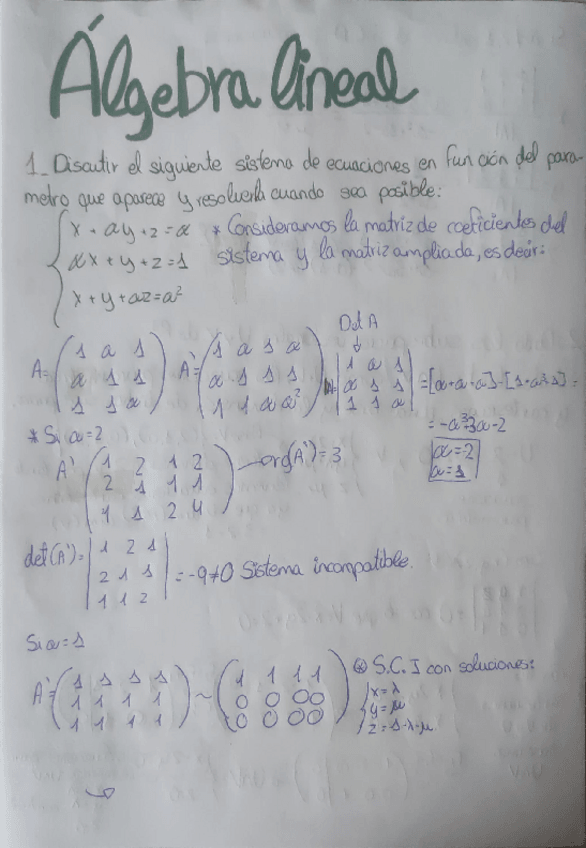 Álgebra lineal
1_ Discutir el siguiente sistema de ecuaciones en función del pará-
metro que aparece y resolverla cuando sea posible:
{ x + ay + z = a
ax + y + z = 1
x + y + az = a²
* Consideramos la matriz de coeficientes del
sistema y la matriz ampliada, es decir:
Det A
↓
A = (1 a 1
a 1 1
1 1 a)
A' = (1 a 1 a
a 1 1 1
1 1 a a²)
|1 a 1
a 1 1
1 1 a| = [a+a+a]-[1+a³+1] =
= -a³+3a-2
a=2
a=1
* Si a=2
A' (1 2 1 2
2 1 1 1
1 1 2 4) → org(A')=3
det(A') = |1 2 1
2 1 1
1 1 2| = -9≠0 Sistema incompatible.
Si a=1
A' = (1 1 1 1
1 1 1 1
1 1 1 1) ~ (1 1 1 1
0 0 0 0
0 0 0 0)
⊛ S.C.I con soluciones:
{ x=λ
y=μ
z=1-λ-μ